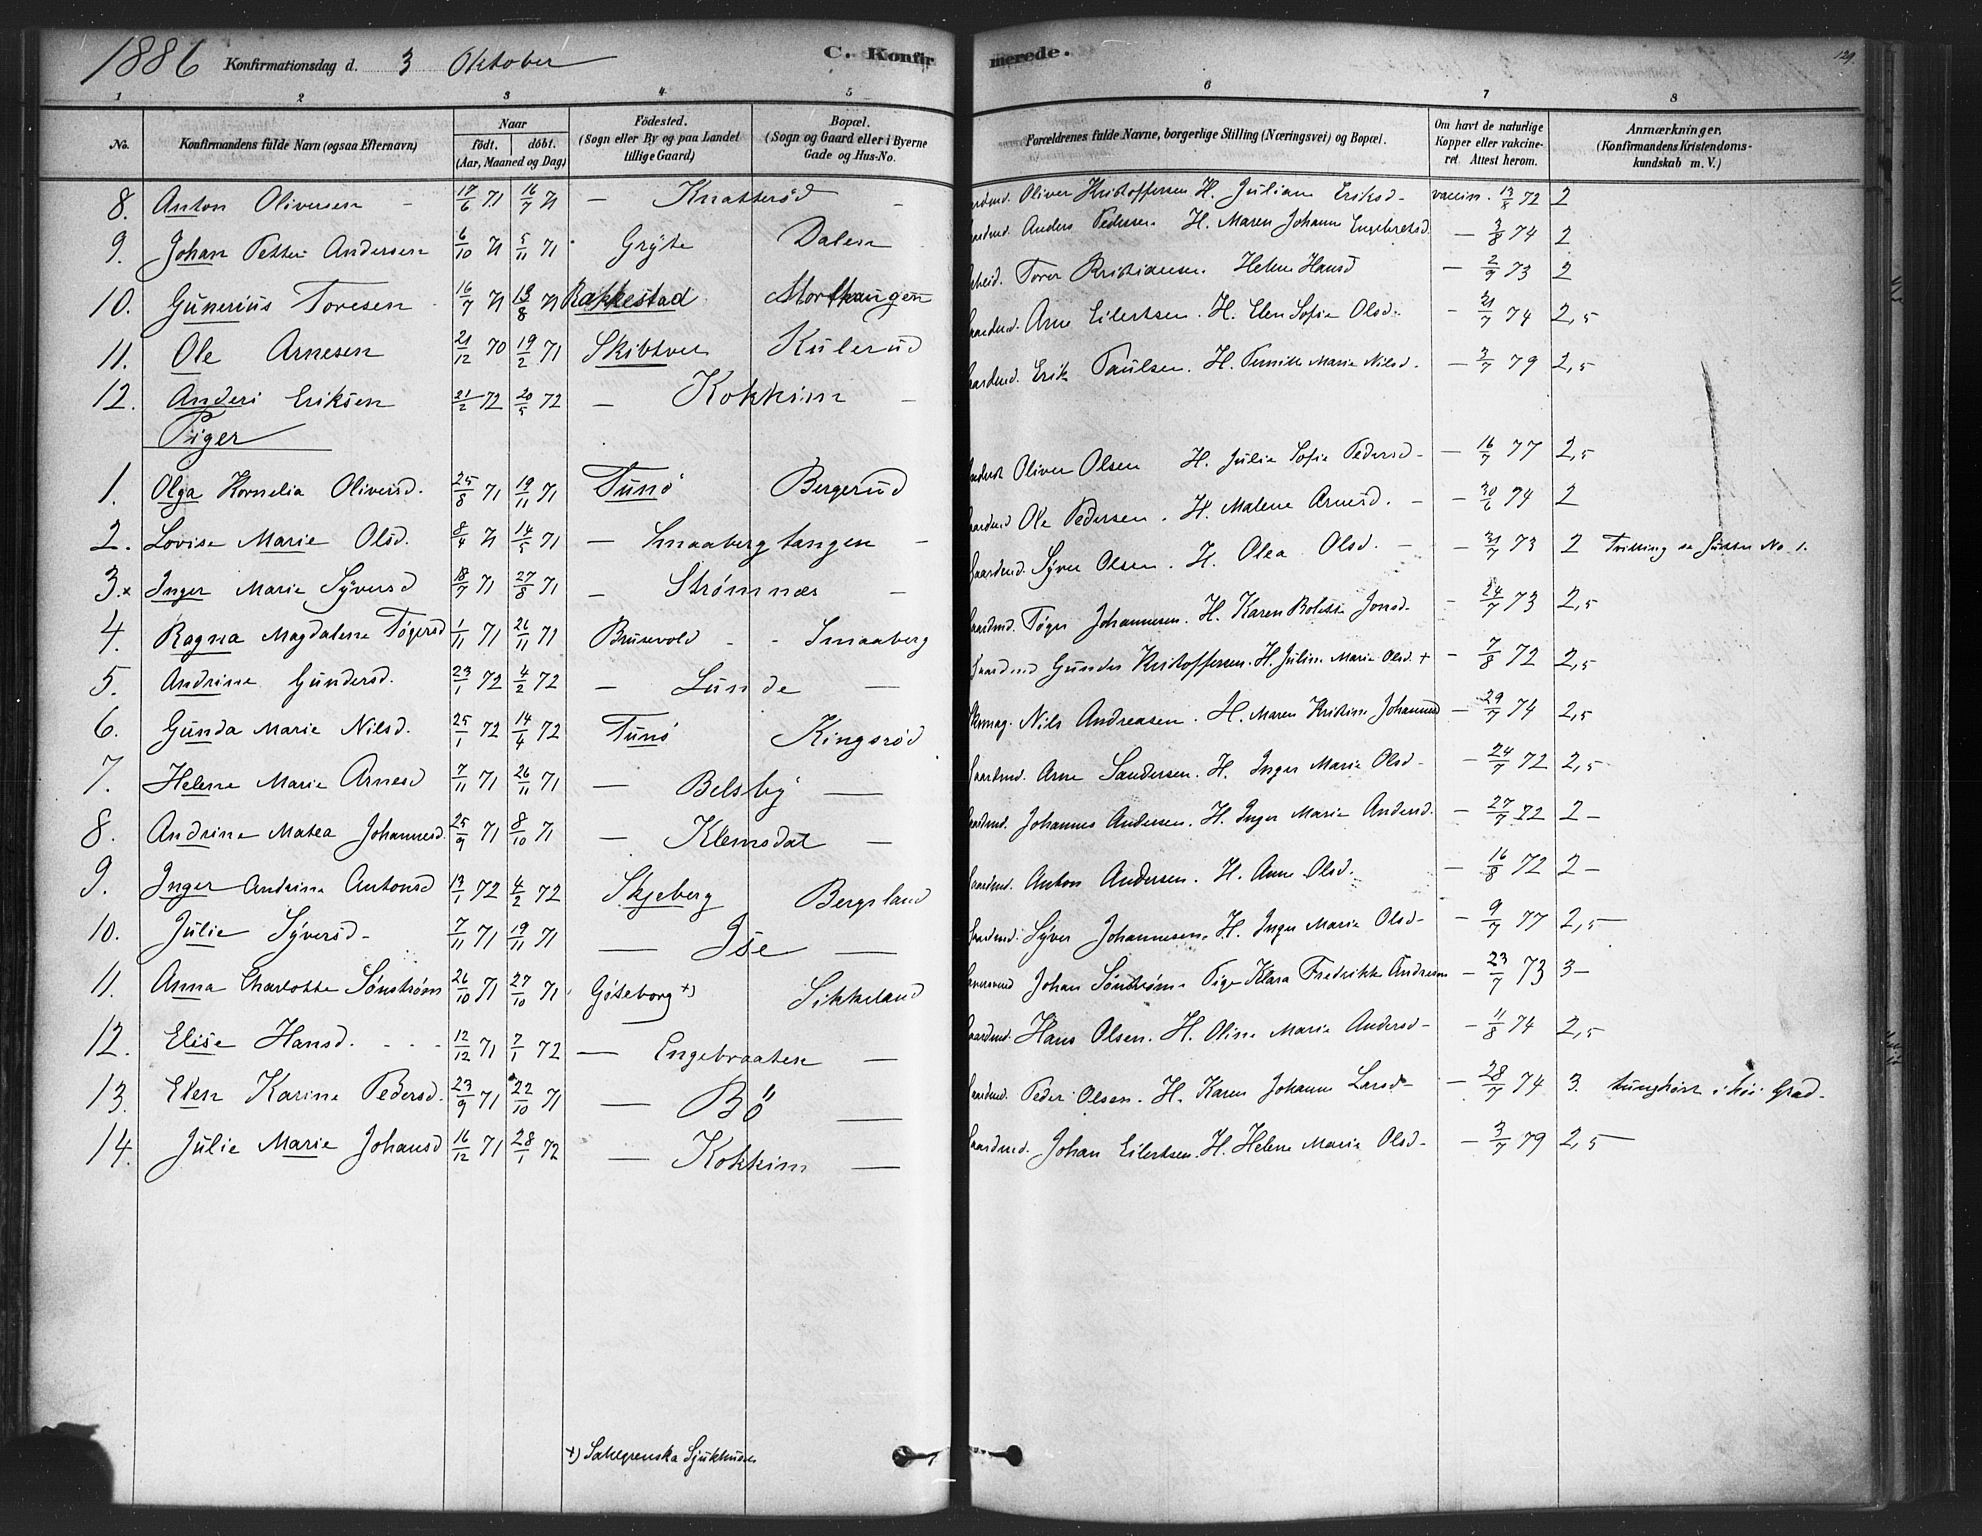 1886 Konfirmationsdag d. 3 Oktober C. Konfirmerede. 129.
1 2 3 4 5 6 7 8
No. Konfirmandens fulde Navn (ogsaa Efternavn) Naar født. døbt. (Aar, Maaned og Dag) Fødested. (Sogn eller By og paa Landet tillige Gaard) Bopæl. (Sogn og Gaard eller i Byerne Gade og Hus-No. Forældrenes fulde Navne, borgerlige Stilling (Næringsvei) og Bopæl. Om havt de naturlige Kopper eller vakcineret. Attest herom. Anmærkninger. (Konfirmandens Kristendomskundskab m. V.)
8. Anton Olivesen - 17/6 71 16/7 71 — Knatterød - Oliver Kristoffersen H. Juliane Eriksd - vaccin. 13/8 72 2
9. Johan Petter Andersen 6/10 71 5/11 71 Gryte Dalen Anders Pedersen H. Maren Johanne Engebretsd. — 3/8 74 2
10. Gunerius Toresen 16/7 71 13/8 71 Rakkestad Morthaugen Torer Kristiansen. Helene Hansd — 2/9 73 2
11. Ole Arnesen 21/12 70 19/2 71 Skibtvet Kulerud Arne Eilertsen. H. Elen Sofie Olsd. - 21/7 74 2,5
12. Anders Eriksen 21/2 72 20/5 72 — Kokkim - Erik Paulsen. H. Pernille Marie Nilsd. — 3/7 79 2,5
Piger
1. Olga Kornelia Oliversd. 25/8 71 19/11 71 Tunø Bergerud Oliver Olsen H. Julie Sofie Pedersd - — 16/7 77 2,5
2. Lovise Marie Olsd. 8/4 71 14/5 71 — Smaabergtangen - Ole Pedersen. H. Malene Arnesd. — - 30/6 74 2
3.x Inger Marie Syversd 18/7 71 27/8 71 — Strømnæs - Gaardmd. Syver Olsen. H. Olea Olsd. — - 31/7 73 2 Trilling se Gutter No 1.
4. Ragna Magdalene Tøgersd 1/11 71 26/11 71 Brusevold - - Smaaberg Tøger Johannesen. H. Karen Bolette Jonsd. - 24/7 73 2,5
5. Andrine Gundersd. 23/1 72 4/2 72 — Lunde — Gaardmd Gunder Kristoffersen. H. Juline Marie Olsd. + - 7/8 72 2,5
6. Gunda Marie Nilsd. 25/1 72 14/4 72 Tunø Kingsrød Nils Andreasen. H. Maren Kristine Johannesd — 29/7 74 2,5
7. Helene Marie Arnesd 7/11 71 26/11 71 — Belsby — Arne Sandersen. H. Inger Marie Olsd - — 24/7 72 2,5
8. Andrine Matea Johannesd. 25/9 71 8/10 71 — Klemsdal — Johannes Andersen. H. Inger Marie Andersd. — 27/7 72 2 -
9. Inger Andrine Antonsd 13/1 72 4/2 72 Skjeberg Bergsland Anton Andersen. H. Anne Olsd. — 16/8 72 2 -
10. Julie Syversd - 7/11 71 19/11 71 — Ise — Syver Johannesen. H. Inger Marie Olsd - — 9/7 77 2,5 —
11. Anna Charlotte Sønstrøm 26/10 71 27/10 71 Göteborg +) Sikkeland Johan Sönstrøm. Pige Klara Fredrikke Andersen — 23/7 73 3 -
12. Elise Hansd. - - - 12/12 71 7/1 72 — Engebraaten — Hans Olsen. H. Oline Marie Andersd - — 11/8 74 2,5
13. Elen Karine Pedersd. 23/9 71 22/10 71 — Bö — Peder Olsen. H. Karen Johanne Larsd - — 28/7 74 3. tunghørt i høi Grad.
14. Julie Marie Johansd 16/12 71 28/1 72 — Kokkim — Johan Eilertsen. H. Helene Marie Olsd - — 3/7 79 2,5 —
+) Sahlgrenska Sjukhuset